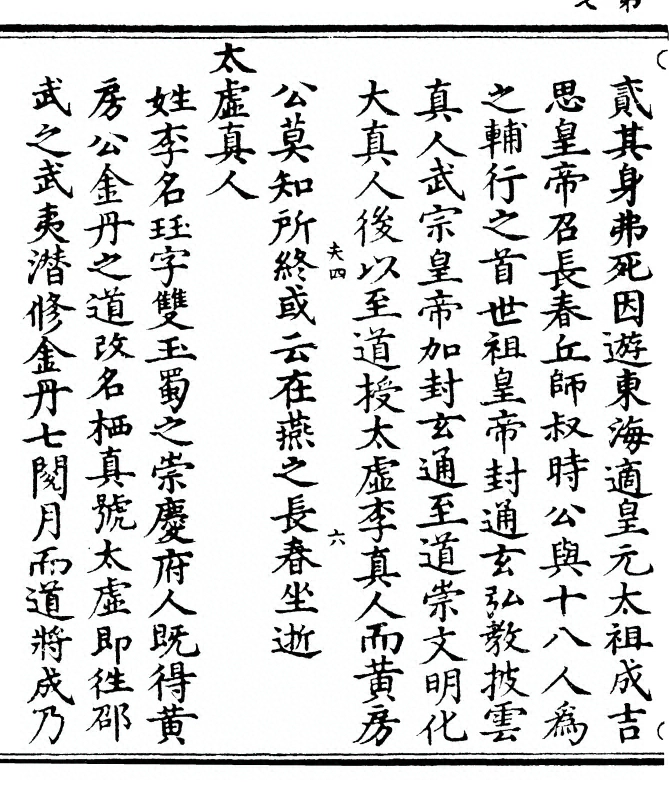 貳其身弗死因遊東海適皇元太祖成吉
思皇帝召長春丘師叔時公與十八人爲
之輔行之首世祖皇帝封通玄弘教披雲
真人武宗皇帝加封玄通至道崇文明化
大真人後以至道授太虛李真人而黃房
夫四
六
公莫知所終或云在燕之長春坐逝
太虛真人
姓李名珏字雙玉蜀之崇慶府人既得黃
房公金丹之道改名栖真號太虛即徃邵
武之武夷潛修金丹七閱月而道將成乃